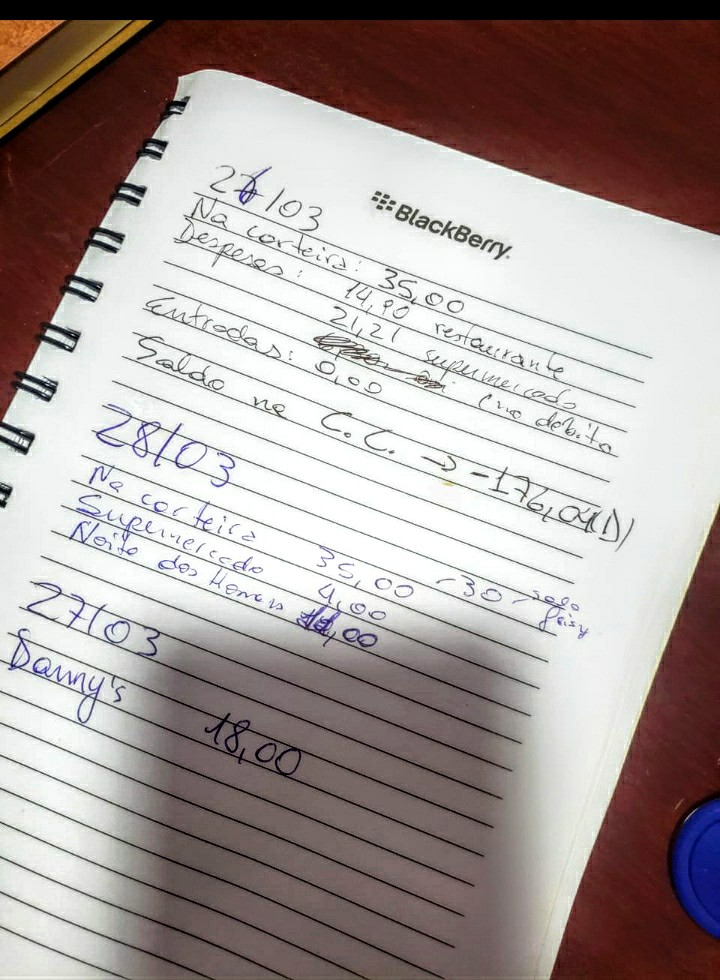 BlackBerry
26/03
Na carteira: 35,00
Despesas: 14,90 restaurante
21,21 supermercado
(no débito
Entradas: 0,00
Saldo na C.C. → -176,04(D)
28/03
Na carteira 35,00 -30 -
Supermercado 4,00
Noite dos Homens ,00
27/03
Danny's 18,00